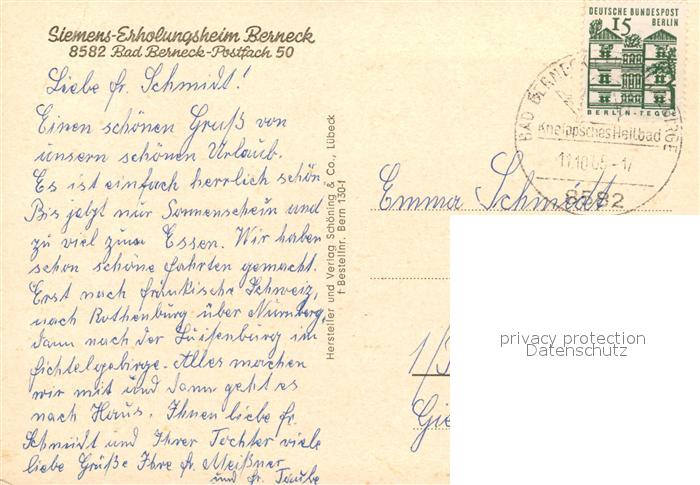 Siemens-Erholungsheim Berneck
8582 Bad Berneck-Postfach 50
Liebe fr. Schmidt!
Einen schönen Gruß von
unsern schönen Urlaub.
Es ist einfach herrlich schön
Bis jetzt nur Sonnenschein und
zu viel zum Essen. Wir haben
schon schöne fahrten gemacht.
Erst nach fränkische Schweiz,
nach Rothenburg über Nürnberg,
dann nach der Luisenburg im
fichtelgebirge. Alles machen
wir mit und dann geht es
nach Haus. Ihnen liebe fr.
Schmidt und Ihrer Tochter viele
liebe Grüße Ihre fr. Meißner
und fr. Taube
Hersteller und Verlag Schöning & Co., Lübeck
† Bestellnr. Bern 130-f
DEUTSCHE BUNDESPOST
BERLIN
15
BERLIN-TEGEL
BAD BERNECK
Kneippsches Heilbad
11.10.65-17
8582
Emma Schmidt
1/
Gie
privacy protection
Datenschutz